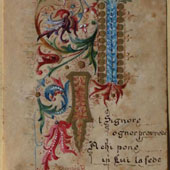 l Signore
ognor provvede
A chi pone
in Lui la fede